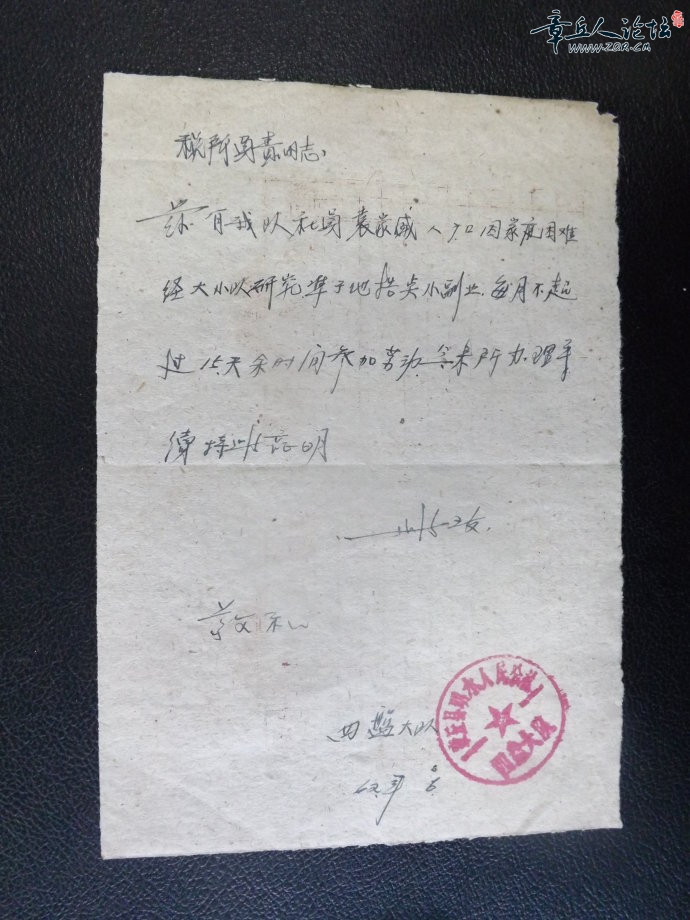 章丘人论坛
WWW.ZQR.CN
税所负责同志:
兹有我队社员袁 人 口因家庭困难
经大小队研究准予他搞点小副业.每月不超
过15天余时间参加劳动 来所办理手
续特此证明
此
敬礼
大队
章丘县明水人民公社
大队